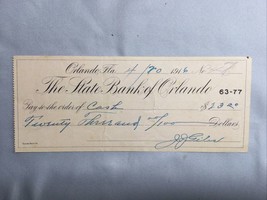 Orlando, Fla. 4/20 1916 No.
The State Bank of Orlando 63-77
Pay to the order of Cash $23.00
Twenty Three and no/100 Dollars